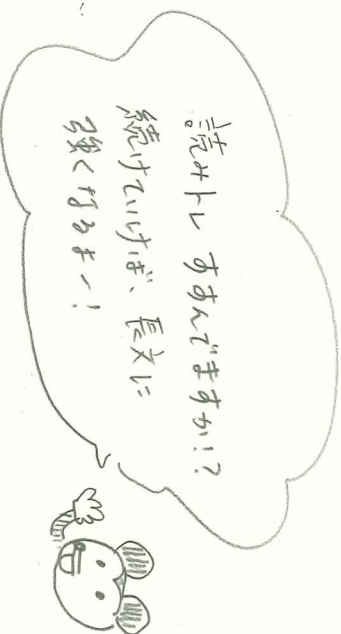 読みトレ すすんでますか!?
続けていけば、長文に
強くなるよ〜!